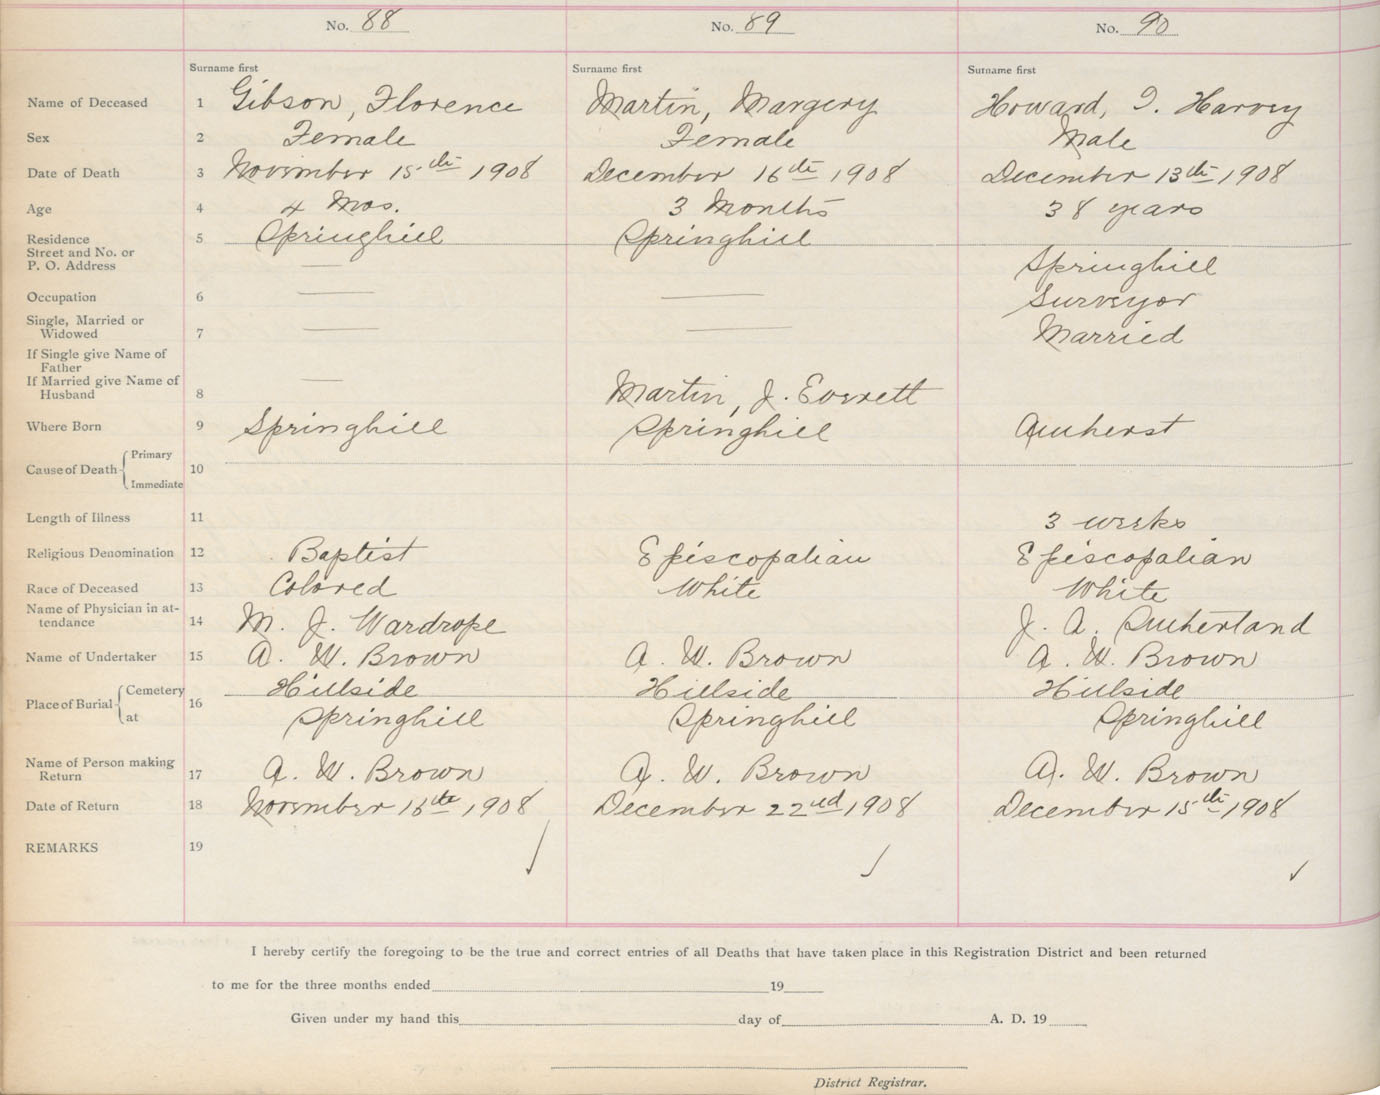 No. 88 No. 89 No. 90
Surname first Surname first Surname first
Name of Deceased 1 Gibson, Florence Martin, Margery Howard, I. Harvey
Sex 2 Female Female Male
Date of Death 3 November 15th 1908 December 16th 1908 December 13th 1908
Age 4 4 Mos. 3 Months 38 years
Residence 5 Springhill Springhill
Street and No. or
P. O. Address — Springhill
Occupation 6 — — Surveyor
Single, Married or
Widowed 7 — — Married
If Single give Name of
Father
If Married give Name of —
Husband 8 Martin, J. Everett
Where Born 9 Springhill Springhill Amherst
Primary
Cause of Death 10
Immediate
Length of Illness 11 3 weeks
Religious Denomination 12 Baptist Episcopalian Episcopalian
Race of Deceased 13 Colored White White
Name of Physician in at-
tendance 14 M. J. Wardrope J. A. Sutherland
Name of Undertaker 15 A. W. Brown A. W. Brown A. W. Brown
Cemetery Hillside Hillside Hillside
Place of Burial 16
at Springhill Springhill Springhill
Name of Person making
Return 17 A. W. Brown A. W. Brown A. W. Brown
Date of Return 18 November 16th 1908 December 22nd 1908 December 15th 1908
REMARKS 19
I hereby certify the foregoing to be the true and correct entries of all Deaths that have taken place in this Registration District and been returned
to me for the three months ended 19
Given under my hand this day of A. D. 19
District Registrar.